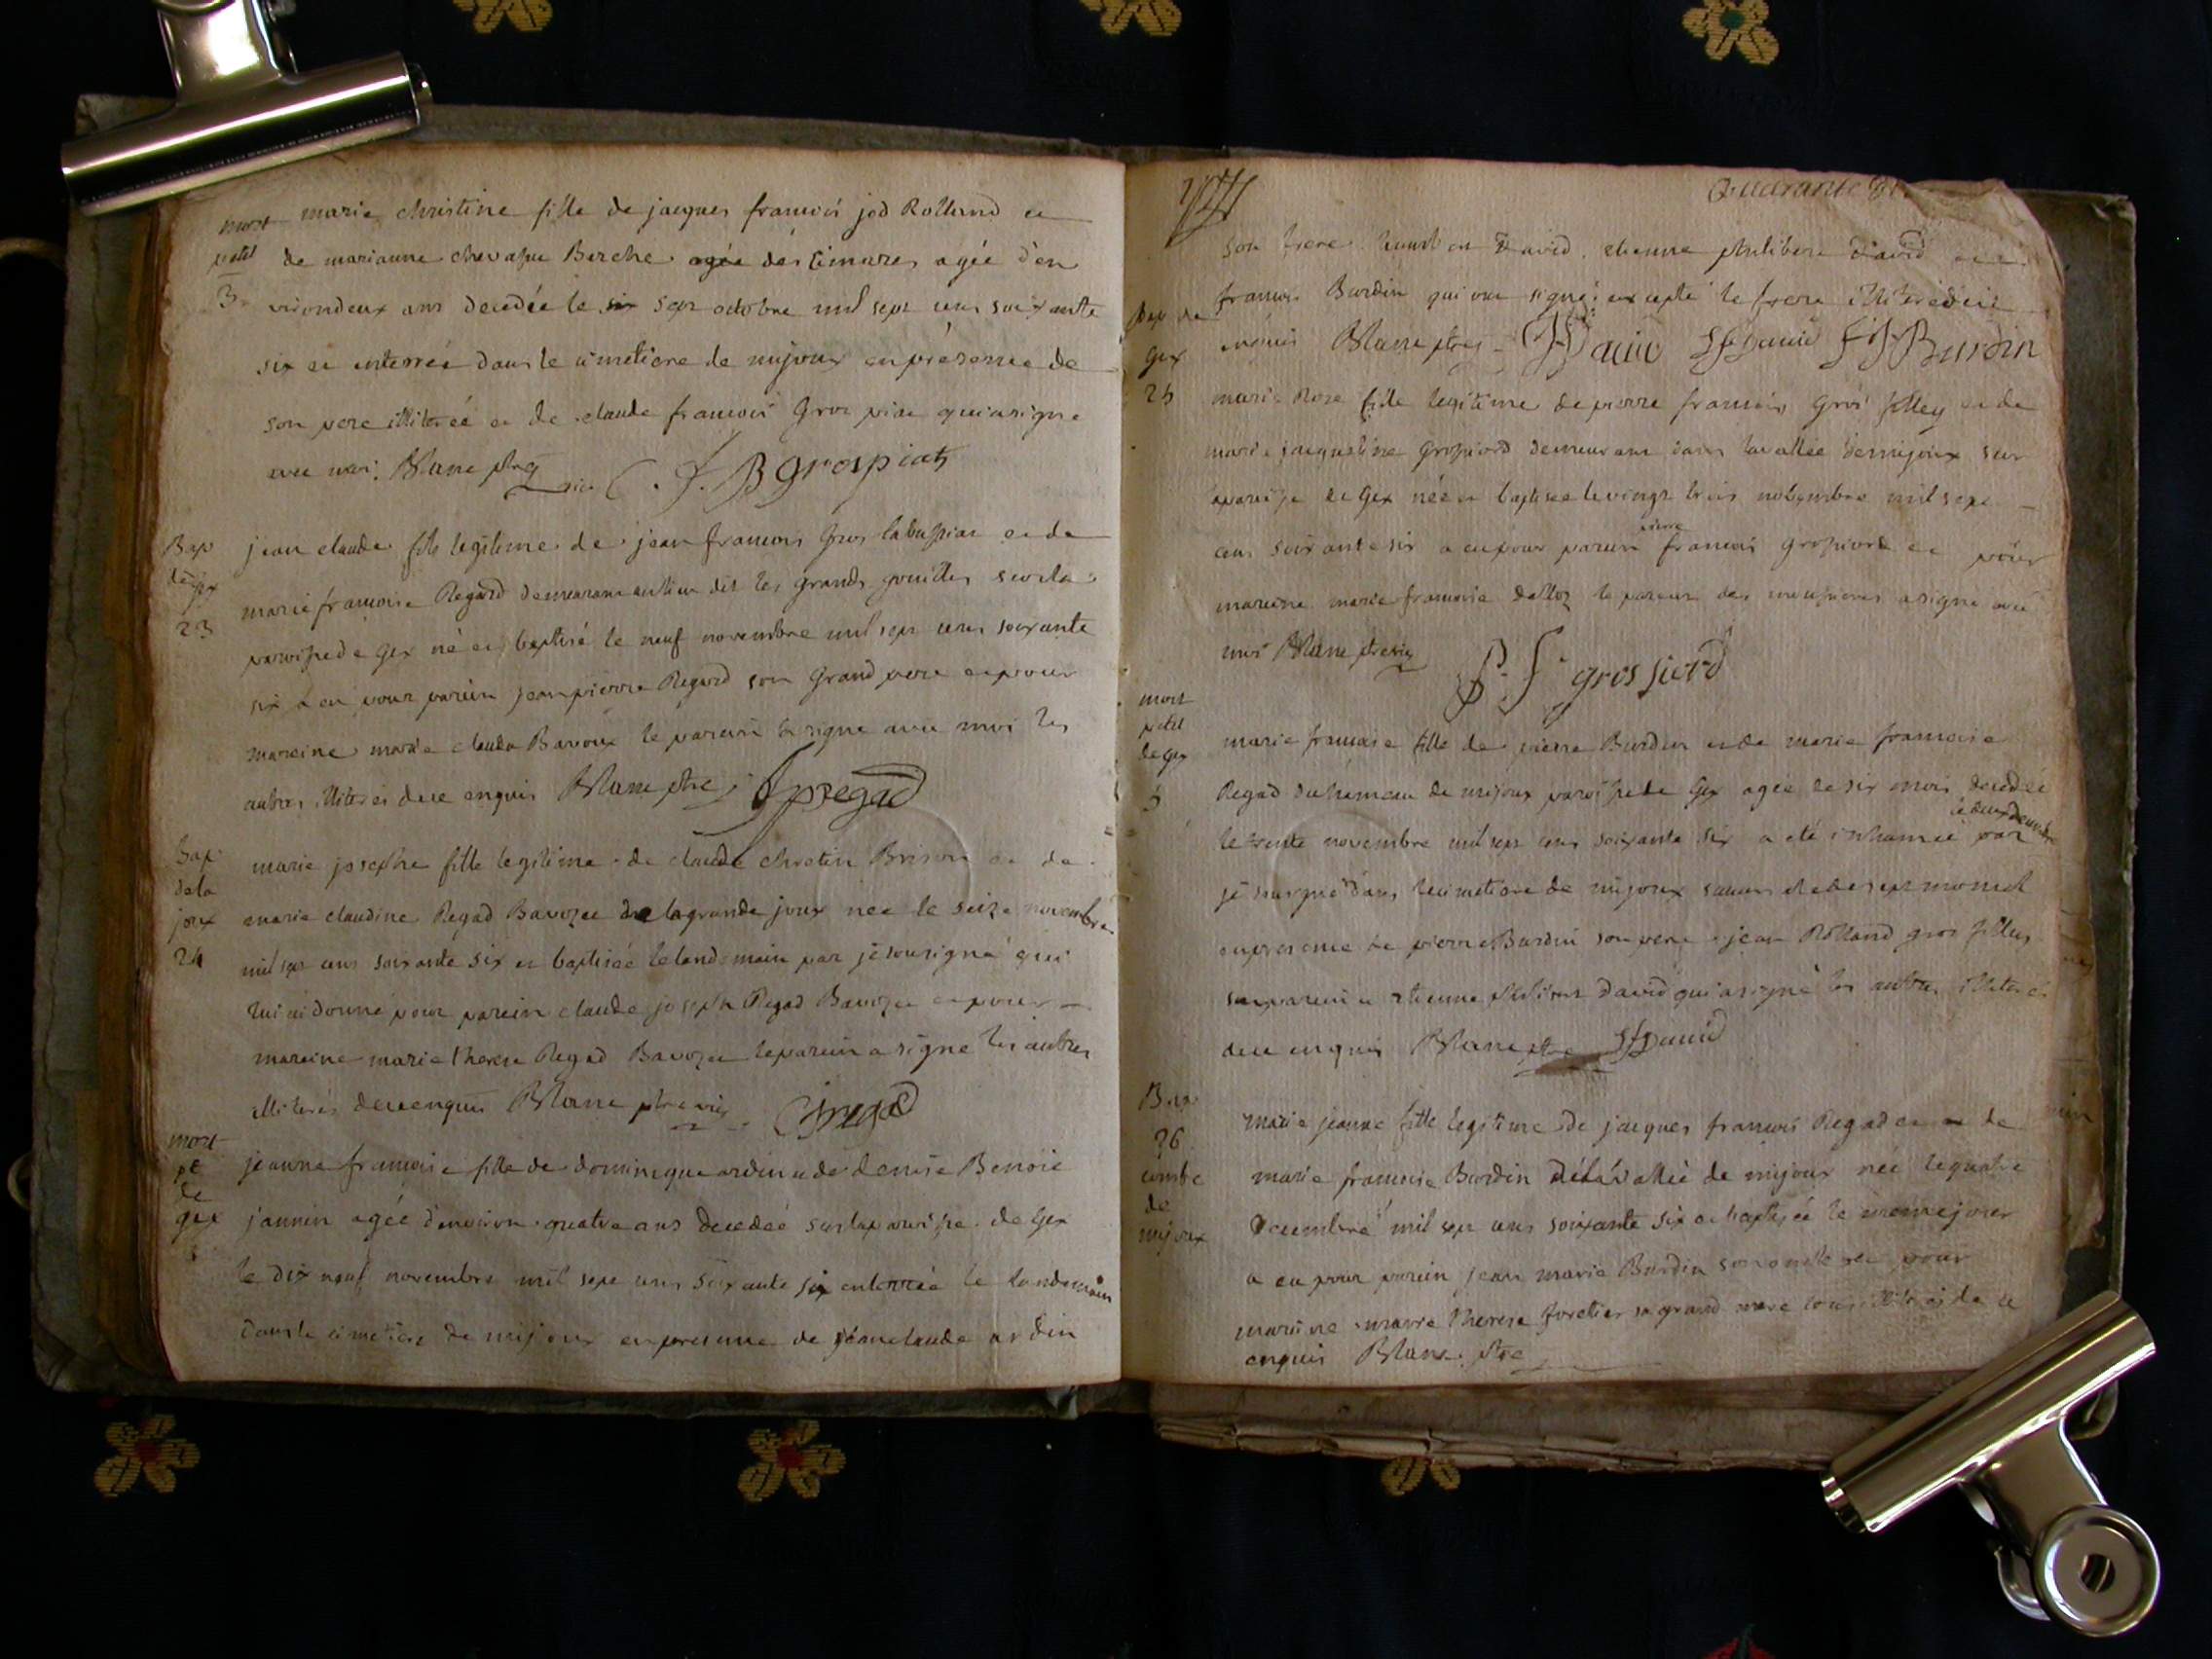 mort marie christine fille de jacques francois jod Rolland et
petit de marianne chevassu Berche agée des cimares agée d'en
3. virondeux ans decedée le six sept octobre mil sept cens soixante
six et enterrée dans le cimetiere de mijoux en présence de
son pere illiteré et de claude francois Gros piat qui a signe
avec moi Blanc ptre vic C. J. B grospiatz
Bap jean claude fils legitime de jean francois Gros et de
de gex marie francoise Regard demeurant au lieu dit les grands gouilles sur la
23 paroisse de Gex né et baptisé le neuf novembre mil sept cens soixante
six a eu pour parein jean pierre Regard son Grand pere et pour
mareine marie clauda Bavoux le parein a signe avec moi les
autres illiterés de ce enquis Blanc ptre jpregad
bap marie josephe fille legitime de claude chretin Brison et de
de la
joux marie claudine Regad Bavozee de la grande joux née le seize novembre
24 mil sept cens soixante six et baptisée le landemain par je sousigné qui
lui ai donné pour parein claude joseph Regad Bavozee et pour
mareine marie therese Regad Bavozee le parein a signe les autres
illiterés de ce enquis Blanc ptre vic Cjregad
mort
pt jeanne francoise fille de dominique ardin et de denise Benoit
de
gex jannin agée d'environ quatre ans decedeé sur la paroisse de Gex
le dix neuf novembre mil sept cens soixante six enterrée le landemain
dans le cimetiere de mijoux en presence de claude ardin
Quarante
son frere david etienne philibert david et
francois Burdin qui ont signé excepté le frere illiteré de ce
Bap de
gex enquis Blanc ptre David David Burdin
25 marie Rose fille legitime de pierre francois Gros filley et de
marie jaqueline Grosfiord demeurant dans la vallée de mijoux sur
la paroisse de Gex née et baptisee le vingt trois novembre mil sept
cens soixante six a eu pour parein pierre francois grosfiord et pour
mareine marie francoise dalloz le parein des a signe avec
moi Blanc ptre vic P. f. grosfiord
mort
petit
de gex marie francoise fille de pierre Burdin et de marie francoise
5 Regad du hameau de mijoux paroisse de Gex agée de six mois decedée
le trente novembre mil sept cens soixante six a été inhumée le deux decembre par
je sousigné dans le cimetiere de mijoux
en presence de pierre Burdin son pere jean Rolland gros fillex
son parein et etienne philibert david qui a signé les autres illiterés
de ce enquis Blanc ptre david
Bap. marie jeanne fille legitime de jacques francois Regad et de
26
combe marie francoise Burdin de la vallée de mijoux née le quatre
de
mijoux decembre mil sept cens soixante six et baptisée le meme jour
a eu pour parein jean marie Burdin son oncle et pour
mareine marie therese foretier sa grand mere tous illiterés de ce
enquis Blanc ptre